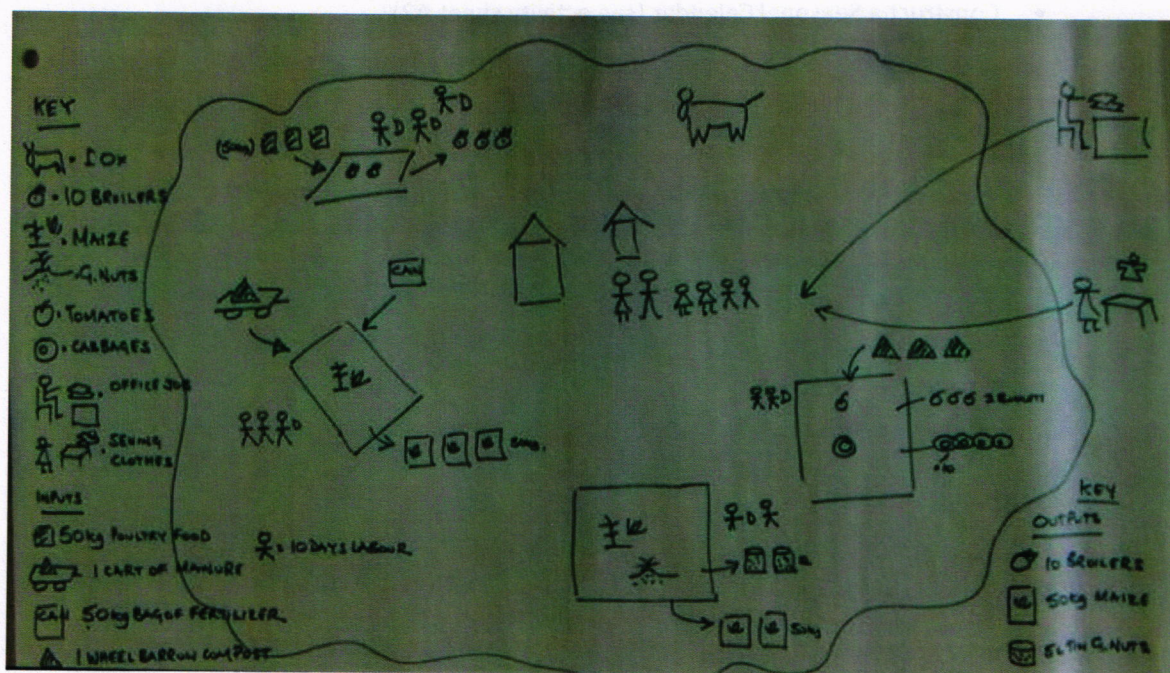 KEY
= 1 OX
= 10 BROILERS
= MAIZE
= G.NUTS
= TOMATOES
= CABBAGES
= OFFICE JOB
= SEWING CLOTHES
INPUTS
50kg POULTRY FOOD
1 CART OF MANURE
CAN 50kg BAG OF FERTILIZER
1 WHEEL BARROW COMPOST
= 10 DAYS LABOUR
(50kg)
D
D
D
CAN
D
50kg
D
D
50kg
KEY
OUTPUTS
10 BROILERS
50kg MAIZE
5L TIN G.NUTS